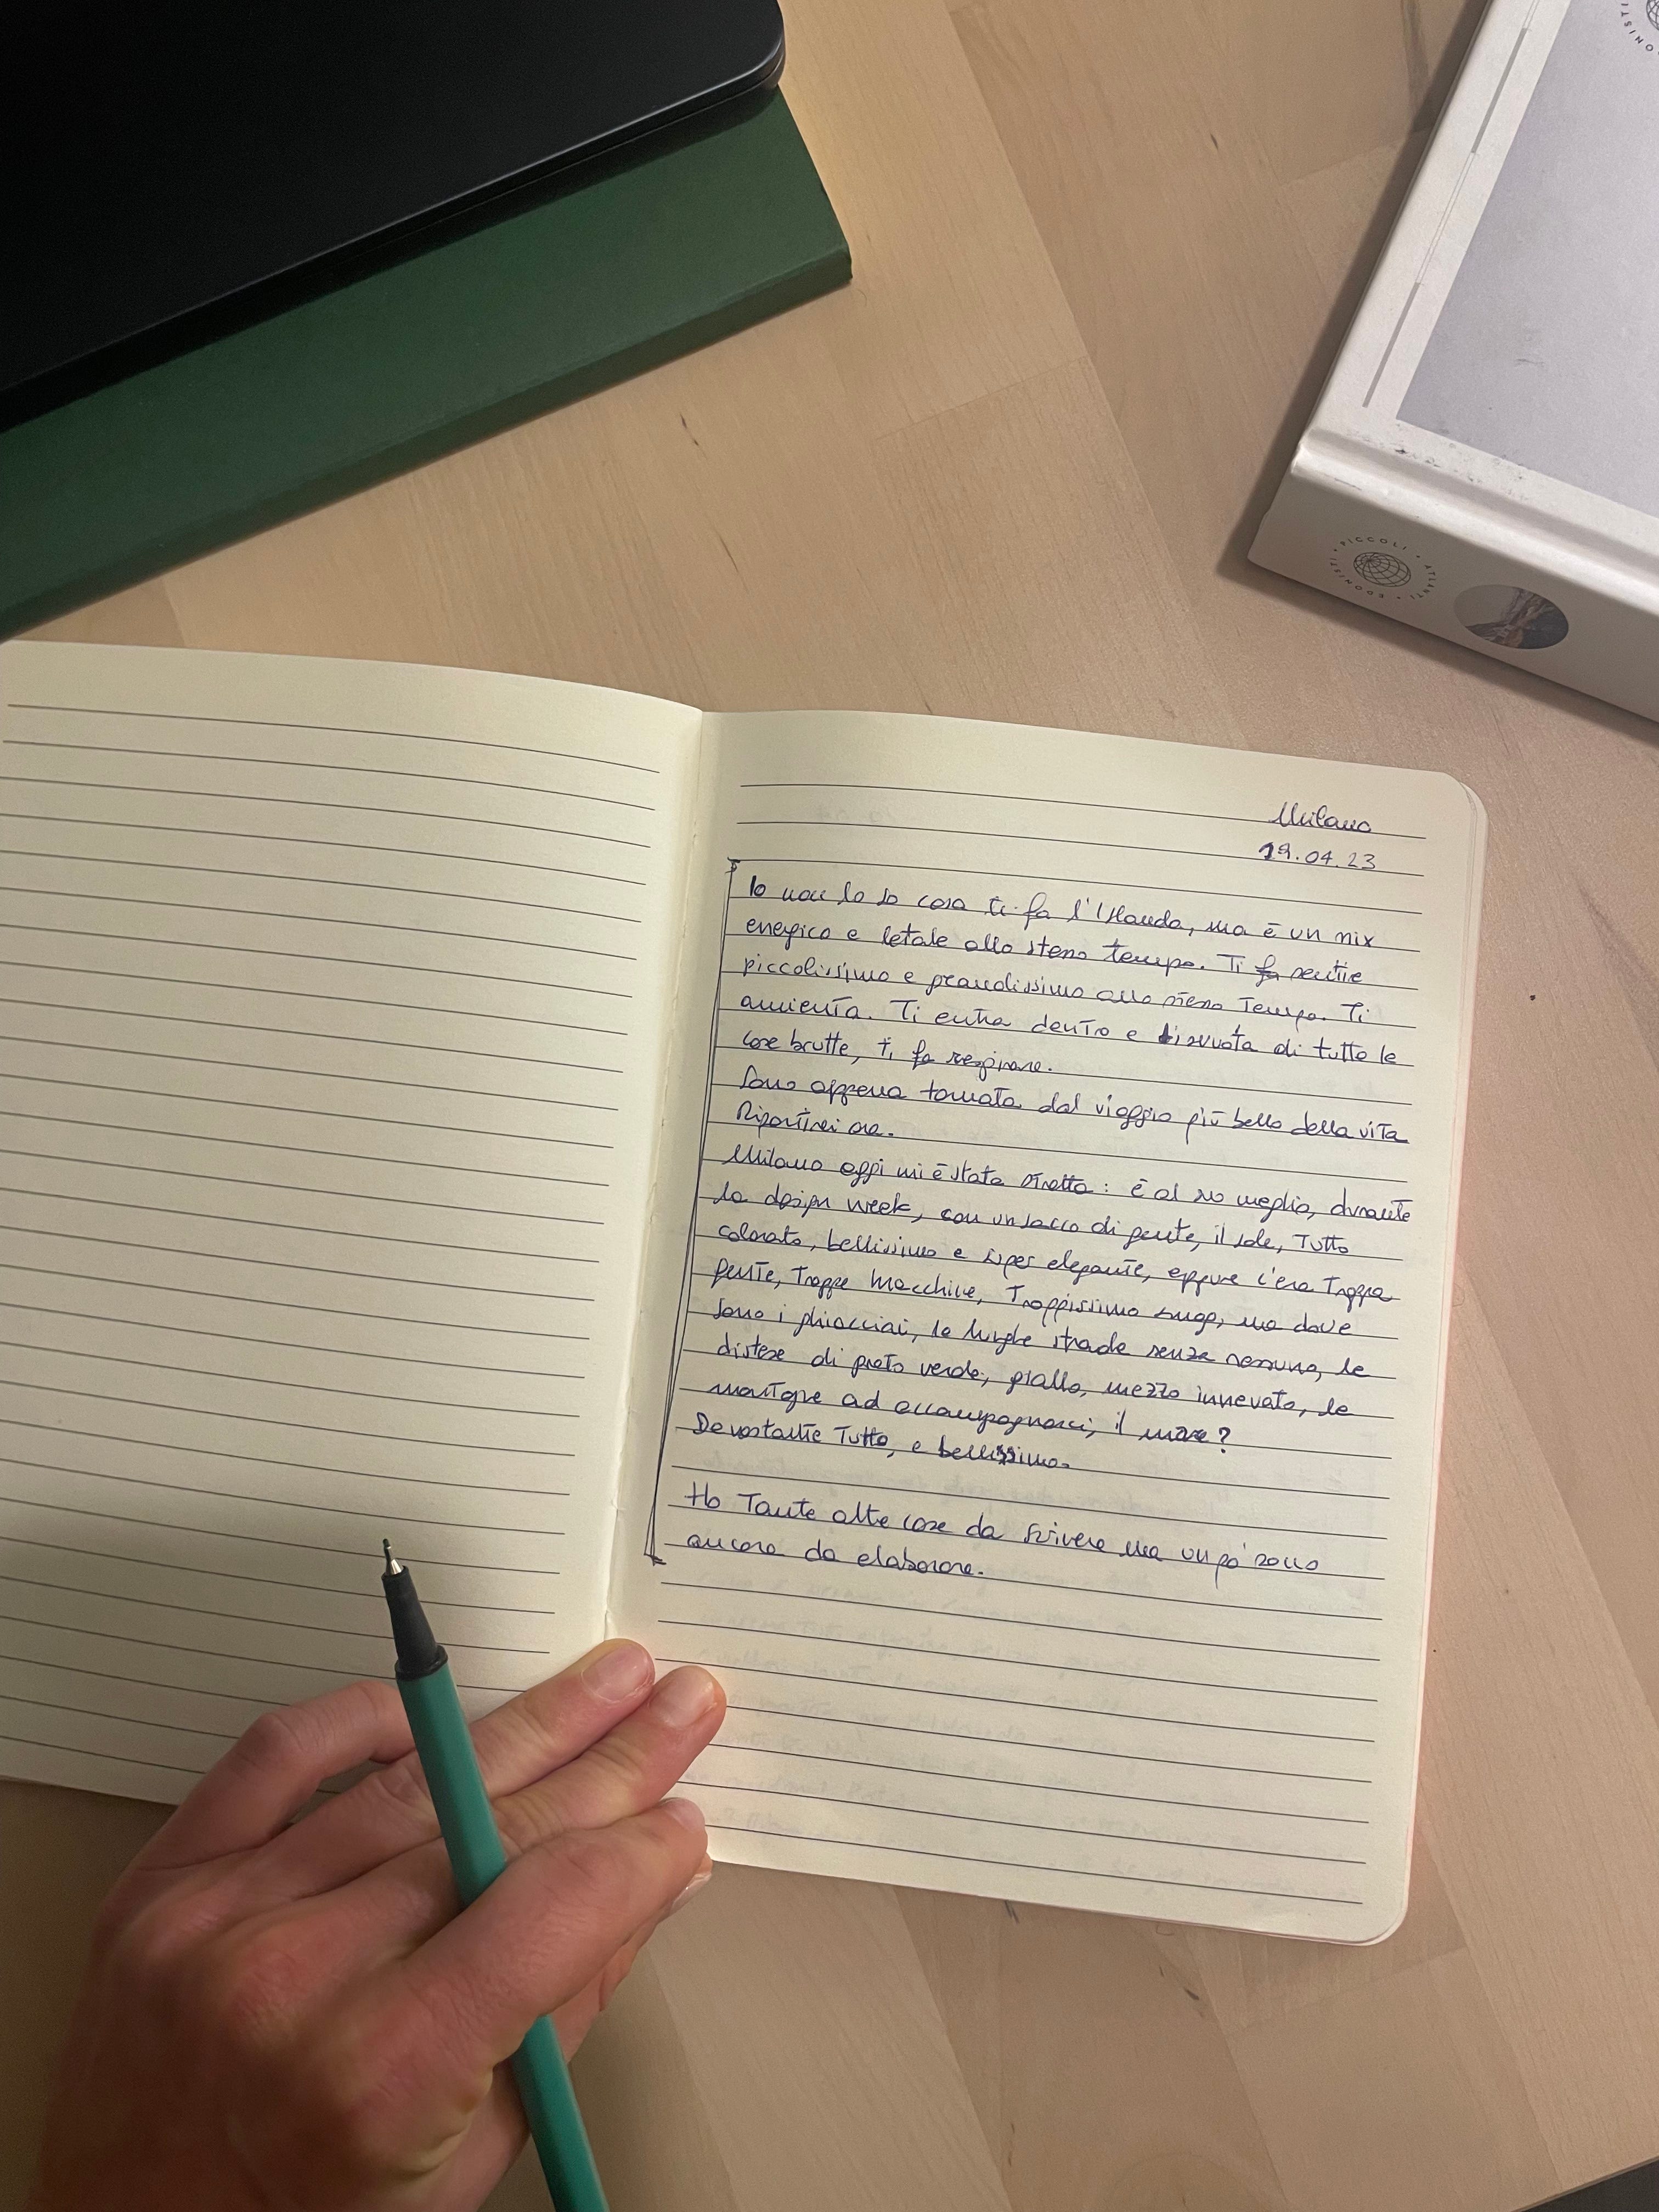 ONISTI
PICCOLI • ATLANTI • EDONISTI •
Milano
19.04.23
Io non lo so cosa ti fa l'Islanda, ma è un mix
energico e letale allo stesso tempo. Ti fa sentire
piccolissimo e grandissimo allo stesso Tempo. Ti
annienta. Ti entra dentro e ti svuota di tutte le
cose brutte, ti fa respirare.
Sono appena tornata dal viaggio più bello della vita
Ripartirei ora.
Milano oggi mi è stata stretta: è al suo meglio, durante
la design week, con un sacco di gente, il sole, Tutto
colorato, bellissimo e super elegante, eppure c'era Troppa
gente, Troppe Macchine, Troppissimo smog, ma dove
sono i ghiacciai, le lunghe strade senza nessuno, le
distese di prato verde, giallo, mezzo innevato, le
montagne ad accompagnarci, il mare?
Devastante Tutto, e bellissimo.
Ho Tante altre cose da scrivere ma un pò sono
ancora da elaborare.